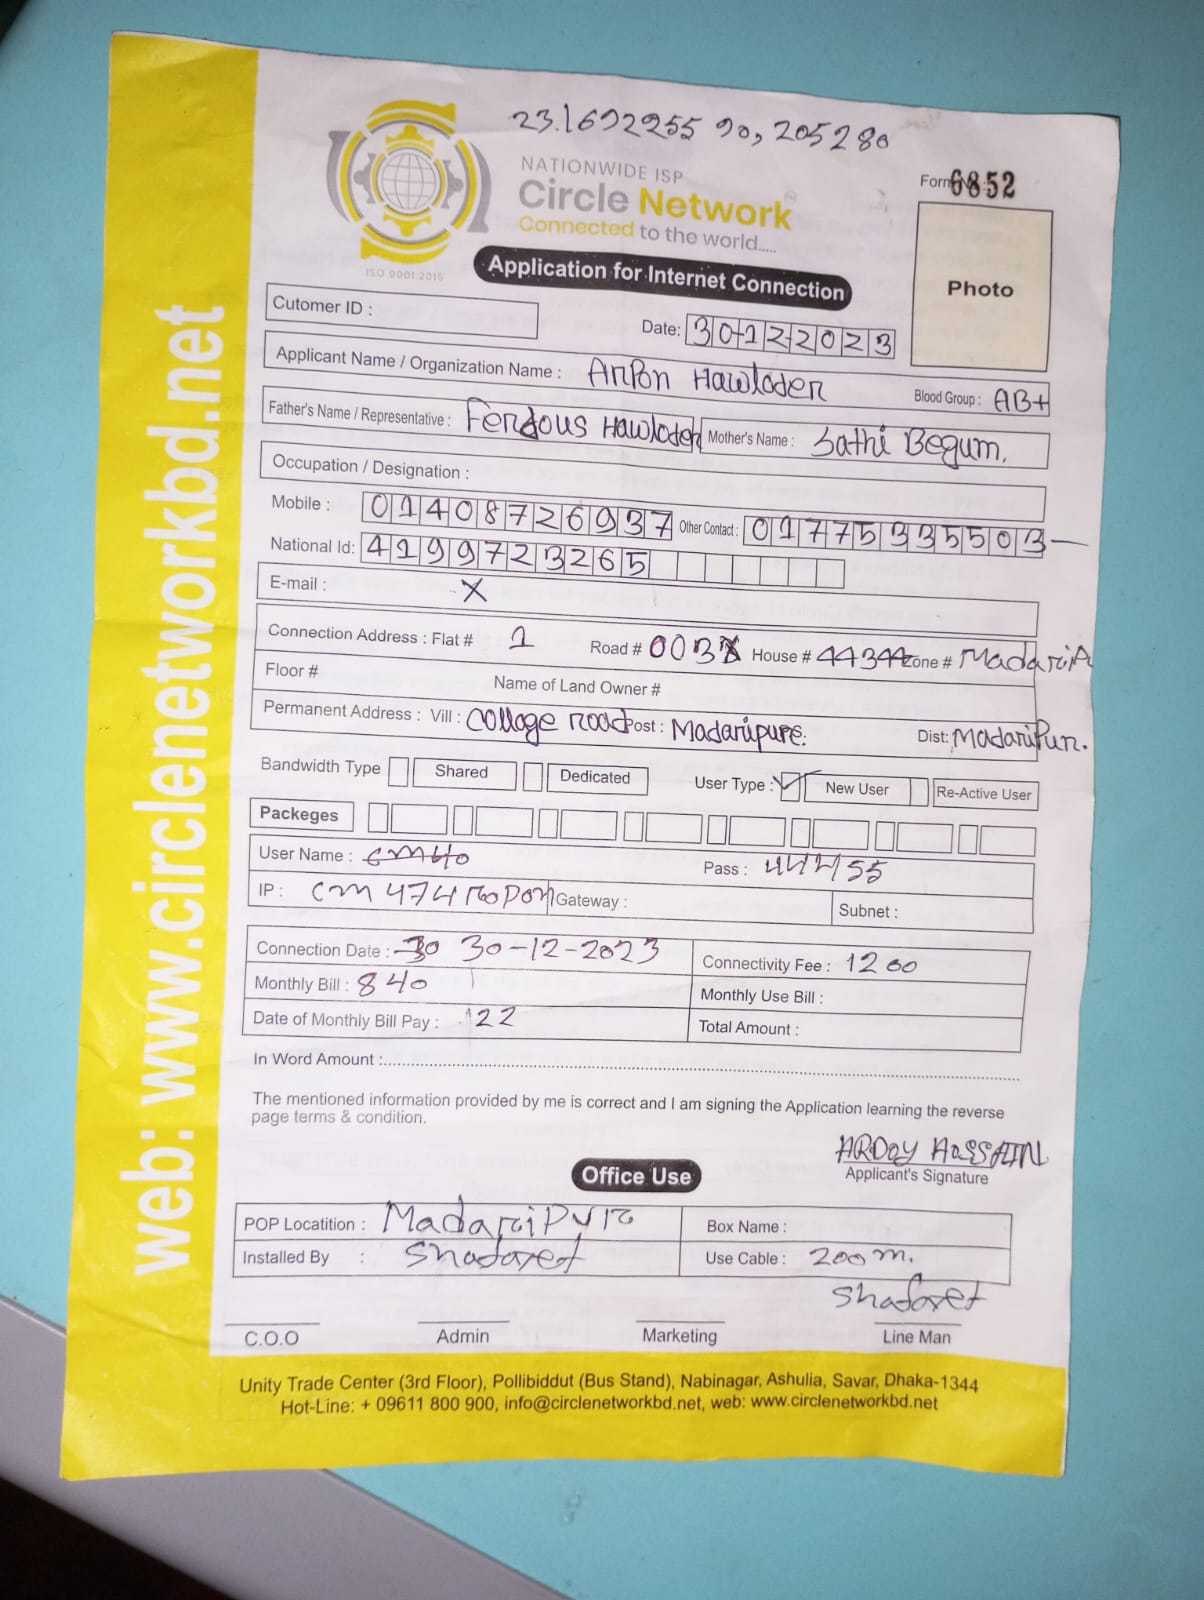 23.1692255 90,205280
NATIONWIDE ISP
Circle Network
Connected to the world.....
ISO 9001:2015
Form 6852
Photo
Application for Internet Connection
Cutomer ID :
Date: 30-12-2023
Applicant Name / Organization Name : Arpon Hawlader
Blood Group : AB+
Father's Name / Representative : Ferdous Hawlader Mother's Name : Sathi Begum.
Occupation / Designation :
Mobile : 01408726937 Other Contact : 01775335503
National Id: 4199723265
E-mail : X
Connection Address : Flat # 1 Road # 003 House # 44344 Zone # Madarip
Floor # Name of Land Owner #
Permanent Address : Vill : College road Post : Madaripure. Dist: Madaripur.
Bandwidth Type Shared Dedicated User Type : New User Re-Active User
Packeges
User Name : Pass : 444455
IP : Gateway : Subnet :
Connection Date : 30 30-12-2023 Connectivity Fee : 1200
Monthly Bill : 840 Monthly Use Bill :
Date of Monthly Bill Pay : 22 Total Amount :
In Word Amount :
The mentioned information provided by me is correct and I am signing the Application learning the reverse
page terms & condition.
ARDOY HASSAIN
Applicant's Signature
Office Use
POP Locatition : Madaripur Box Name :
Installed By : Shadaxet Use Cable : 200 m.
Shadaxet
C.O.O Admin Marketing Line Man
Unity Trade Center (3rd Floor), Pollibiddut (Bus Stand), Nabinagar, Ashulia, Savar, Dhaka-1344
Hot-Line: + 09611 800 900, info@circlenetworkbd.net, web: www.circlenetworkbd.net
web: www.circlenetworkbd.net